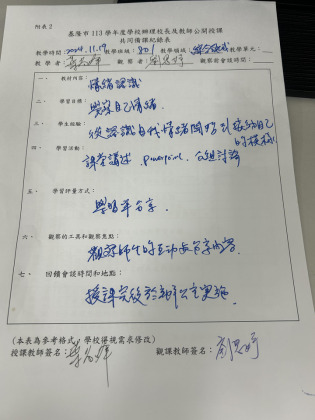 附表2
基隆市 113 學年度學校辦理校長及教師公開授課
共同備課紀錄表
教學時間：2024.11.09 教學班級：801 教學領域：綜合領域 教學單元：
教學者： 觀察者： 觀察前會談時間：
一、 教材內容：
情緒認識
二、 學習目標：
覺察自己情緒
三、 學生經驗：
從認識自我情緒開始到 自己的模樣
四、 學習活動：
課堂講述、Powerpoint、分組討論
五、 學習評量方式：
學習單分享
六、 觀察的工具和觀察焦點：
觀察師生的互動與分享內容
七、 回饋會談時間和地點：
授課完後於辦公室實施
(本表為參考格式，學校得視需求修改)
授課教師簽名： 觀課教師簽名：